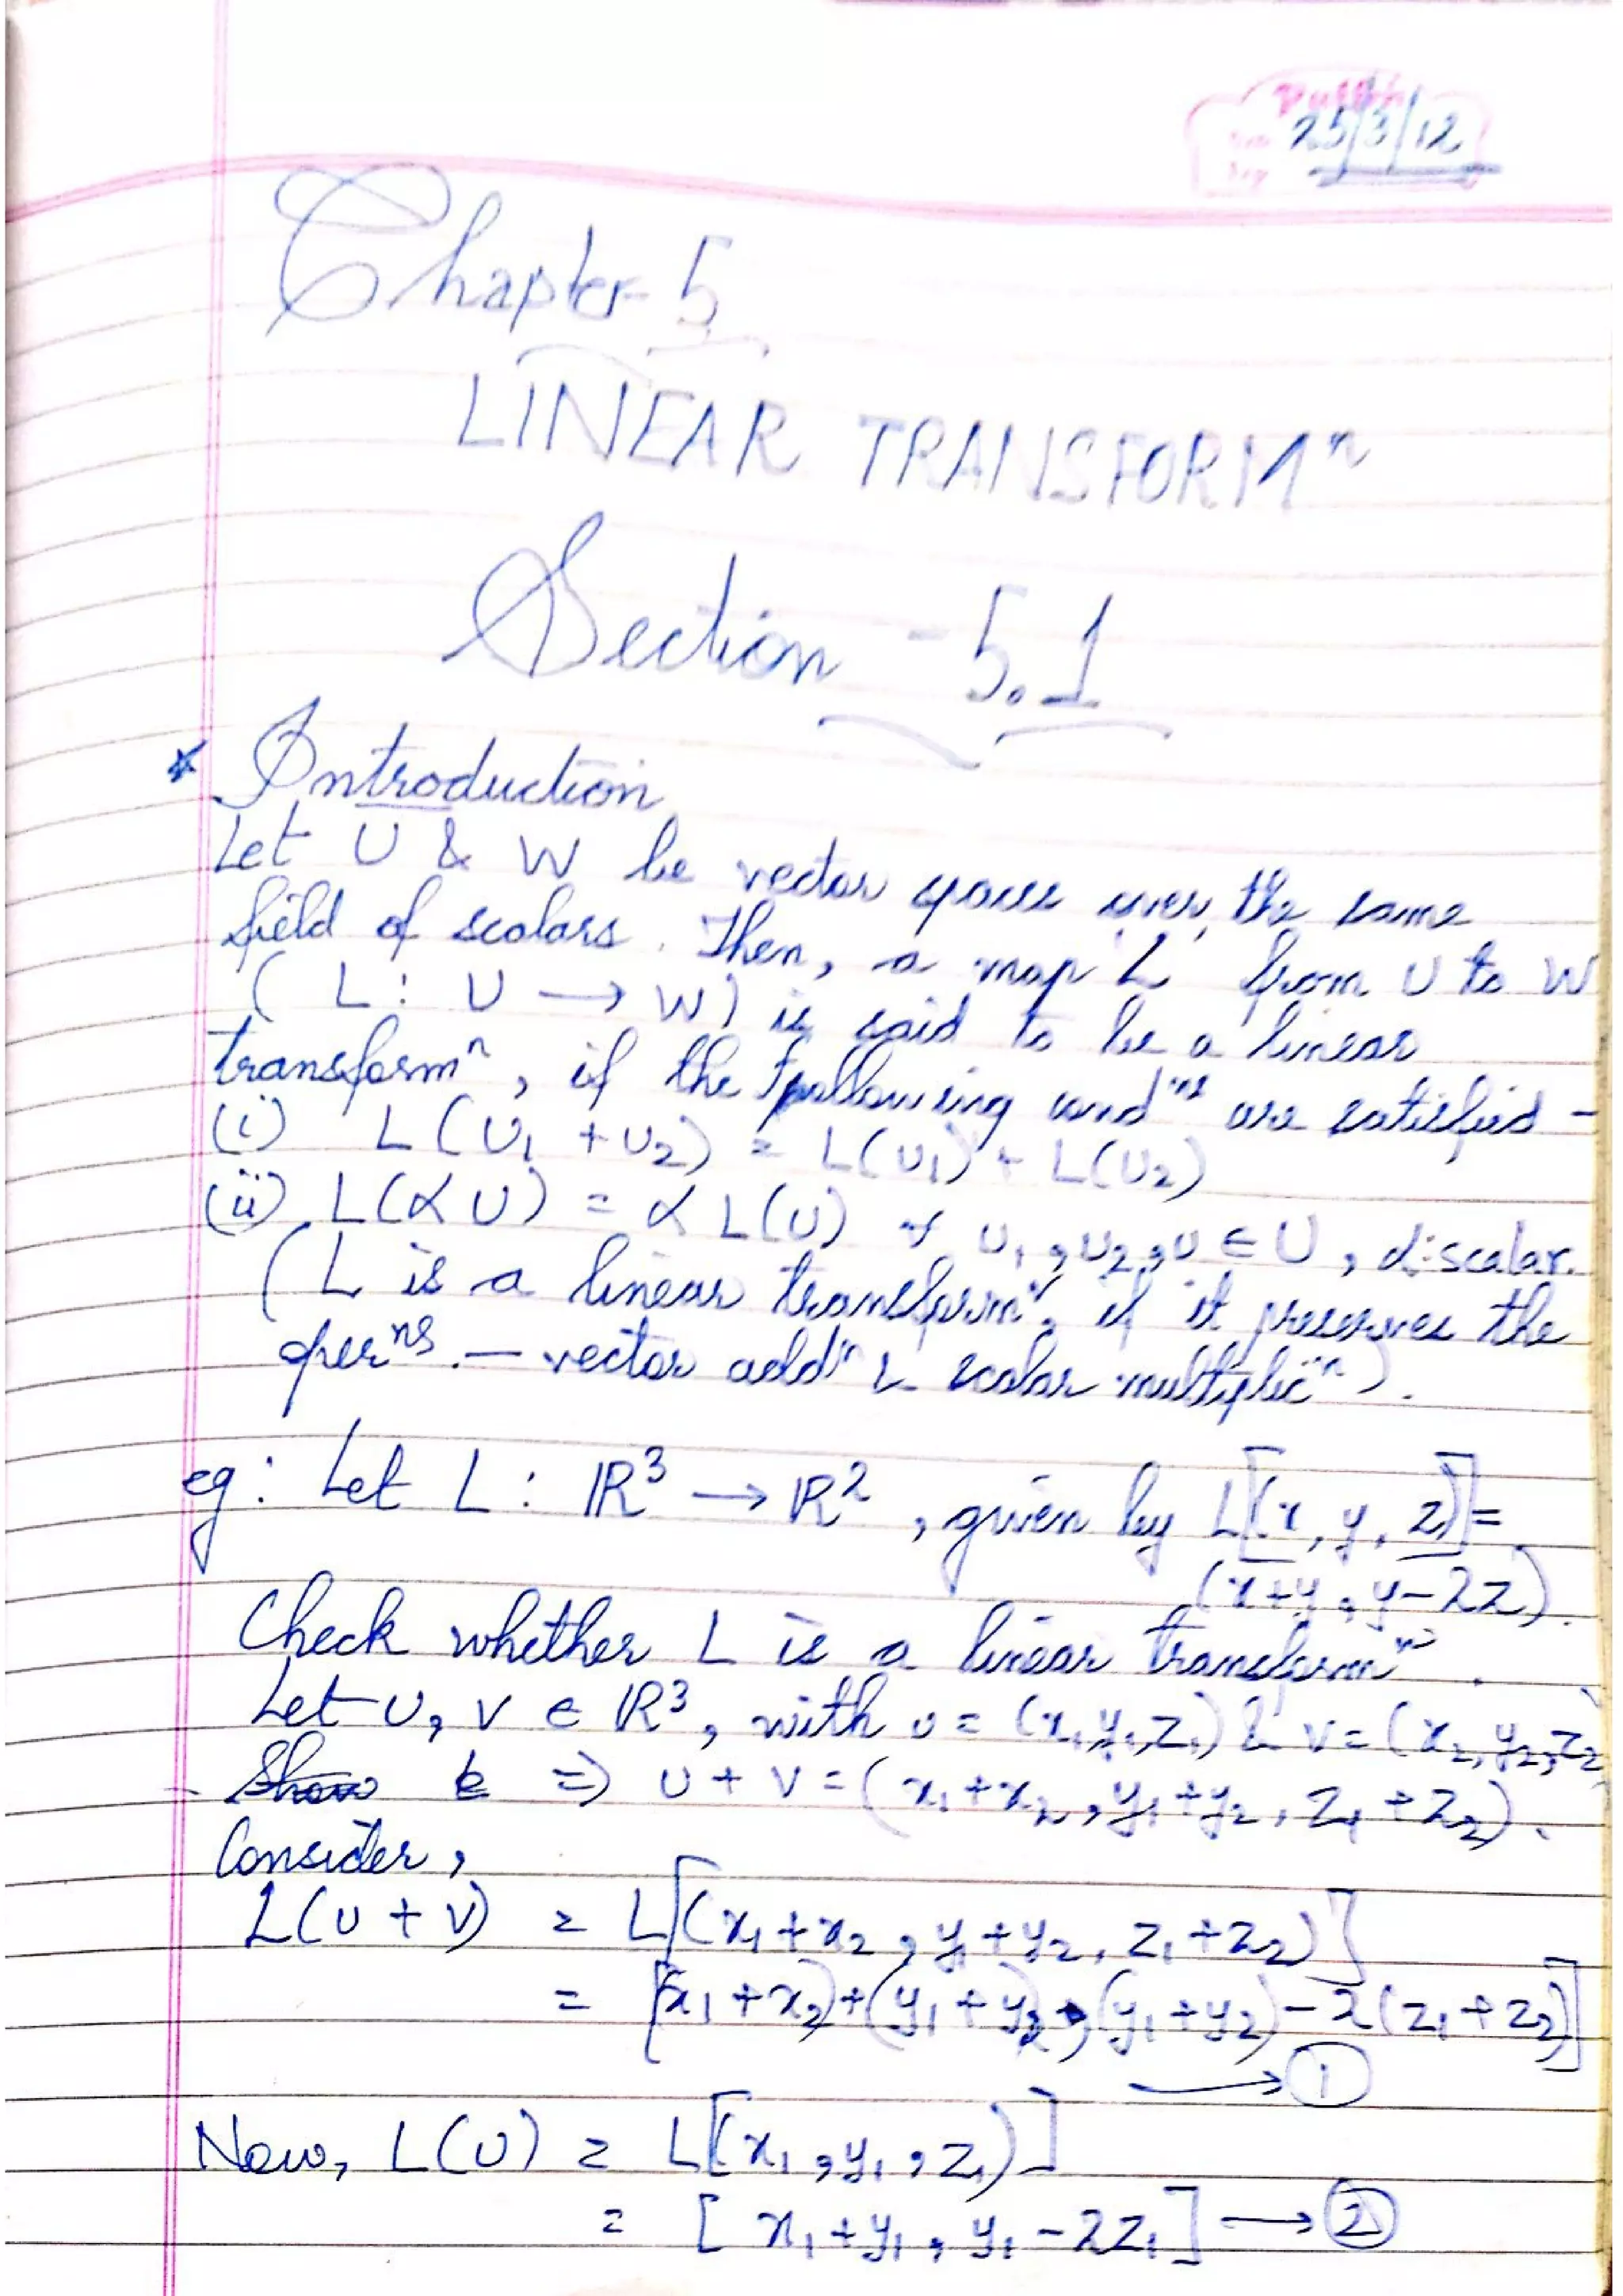 25/3/12
Chapter-5
LINEAR TRANSFORMⁿ
Section - 5.1
* Introduction
Let U & W be vector spaces over the same
field of scalars. Then, a map 'L' from U to W
( L : U → W) is said to be a linear
transformⁿ, if the following condⁿˢ are satisfied -
(i) L(U₁ + U₂) = L(U₁) + L(U₂)
(ii) L(αU) = αL(U) ∀ U₁, U₂, U ∈ U, α: scalar.
(L is a linear transformⁿ, if it preserves the
operⁿˢ. — vector addⁿ & scalar multiplicⁿ).
eg: Let L : ℝ³ → ℝ², given by L[(x, y, z)] =
(x+y, y-2z).
Check whether L is a linear transformⁿ.
Let U, V ∈ ℝ³, with U = (x₁, y₁, z₁) & V = (x₂, y₂, z₂
Show ⇒ U + V = (x₁+x₂, y₁+y₂, z₁+z₂).
Consider,
L(U + V) = L[(x₁+x₂, y₁+y₂, z₁+z₂)]
= [(x₁+x₂)+(y₁+y₂), (y₁+y₂)-2(z₁+z₂)]
→ ①
Now, L(U) = L[(x₁, y₁, z₁)]
= [x₁+y₁, y₁-2z₁] → ②